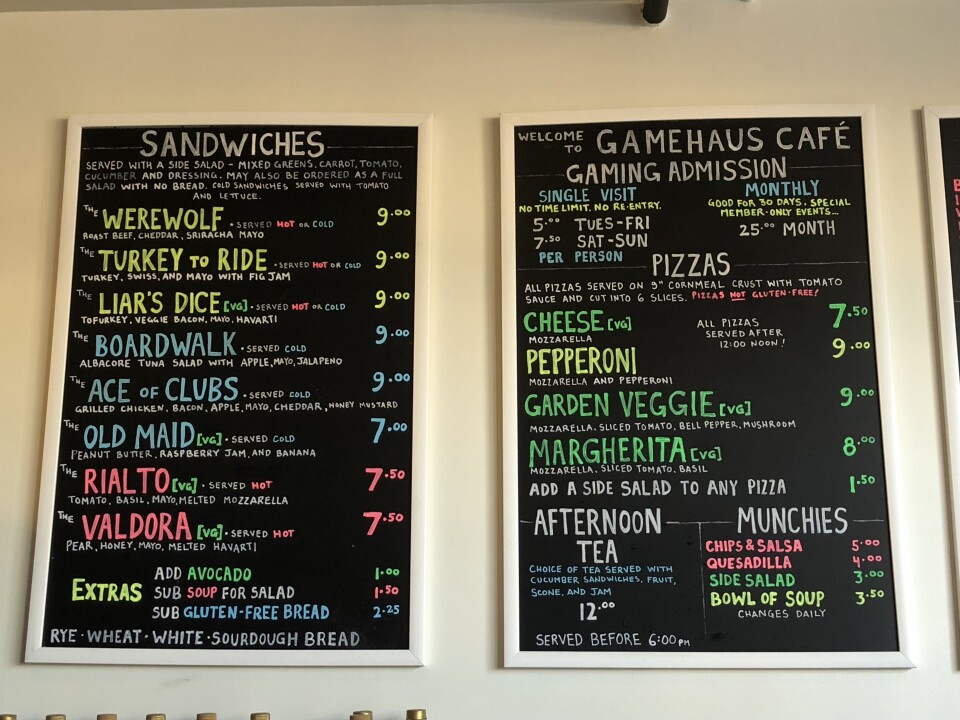 SANDWICHES
SERVED WITH A SIDE SALAD - MIXED GREENS, CARROT, TOMATO,
CUCUMBER AND DRESSING. MAY ALSO BE ORDERED AS A FULL
SALAD WITH NO BREAD. COLD SANDWICHES SERVED WITH TOMATO
AND LETTUCE.
THE WEREWOLF • SERVED HOT OR COLD 9.00
ROAST BEEF, CHEDDAR, SRIRACHA MAYO
THE TURKEY TO RIDE • SERVED HOT OR COLD 9.00
TURKEY, SWISS, AND MAYO WITH FIG JAM
THE LIAR'S DICE [VG] • SERVED HOT OR COLD 9.00
TOFURKEY, VEGGIE BACON, MAYO, HAVARTI
THE BOARDWALK • SERVED COLD 9.00
ALBACORE TUNA SALAD WITH APPLE, MAYO, JALAPENO
THE ACE OF CLUBS • SERVED COLD 9.00
GRILLED CHICKEN, BACON, APPLE, MAYO, CHEDDAR, HONEY MUSTARD
THE OLD MAID [VG] • SERVED COLD 7.00
PEANUT BUTTER, RASPBERRY JAM, AND BANANA
THE RIALTO [VG] • SERVED HOT 7.50
TOMATO, BASIL, MAYO, MELTED MOZZARELLA
THE VALDORA [VG] • SERVED HOT 7.50
PEAR, HONEY, MAYO, MELTED HAVARTI
EXTRAS
ADD AVOCADO 1.00
SUB SOUP FOR SALAD 1.50
SUB GLUTEN-FREE BREAD 2.25
RYE • WHEAT • WHITE • SOURDOUGH BREAD
WELCOME TO GAMEHAUS CAFÉ
GAMING ADMISSION
SINGLE VISIT
NO TIME LIMIT. NO RE-ENTRY.
5.00 TUES-FRI
7.50 SAT-SUN
PER PERSON
MONTHLY
GOOD FOR 30 DAYS, SPECIAL
MEMBER-ONLY EVENTS...
25.00 MONTH
PIZZAS
ALL PIZZAS SERVED ON 9" CORNMEAL CRUST WITH TOMATO
SAUCE AND CUT INTO 6 SLICES. PIZZAS NOT GLUTEN-FREE!
CHEESE [VG] 7.50
MOZZARELLA
ALL PIZZAS
SERVED AFTER
12:00 NOON!
PEPPERONI 9.00
MOZZARELLA AND PEPPERONI
GARDEN VEGGIE [VG] 9.00
MOZZARELLA, SLICED TOMATO, BELL PEPPER, MUSHROOM
MARGHERITA [VG] 8.00
MOZZARELLA, SLICED TOMATO, BASIL
ADD A SIDE SALAD TO ANY PIZZA 1.50
AFTERNOON
TEA
CHOICE OF TEA SERVED WITH
CUCUMBER SANDWICHES, FRUIT,
SCONE, AND JAM
12.00
SERVED BEFORE 6:00PM
MUNCHIES
CHIPS & SALSA 5.00
QUESADILLA 4.00
SIDE SALAD 3.00
BOWL OF SOUP 3.50
CHANGES DAILY